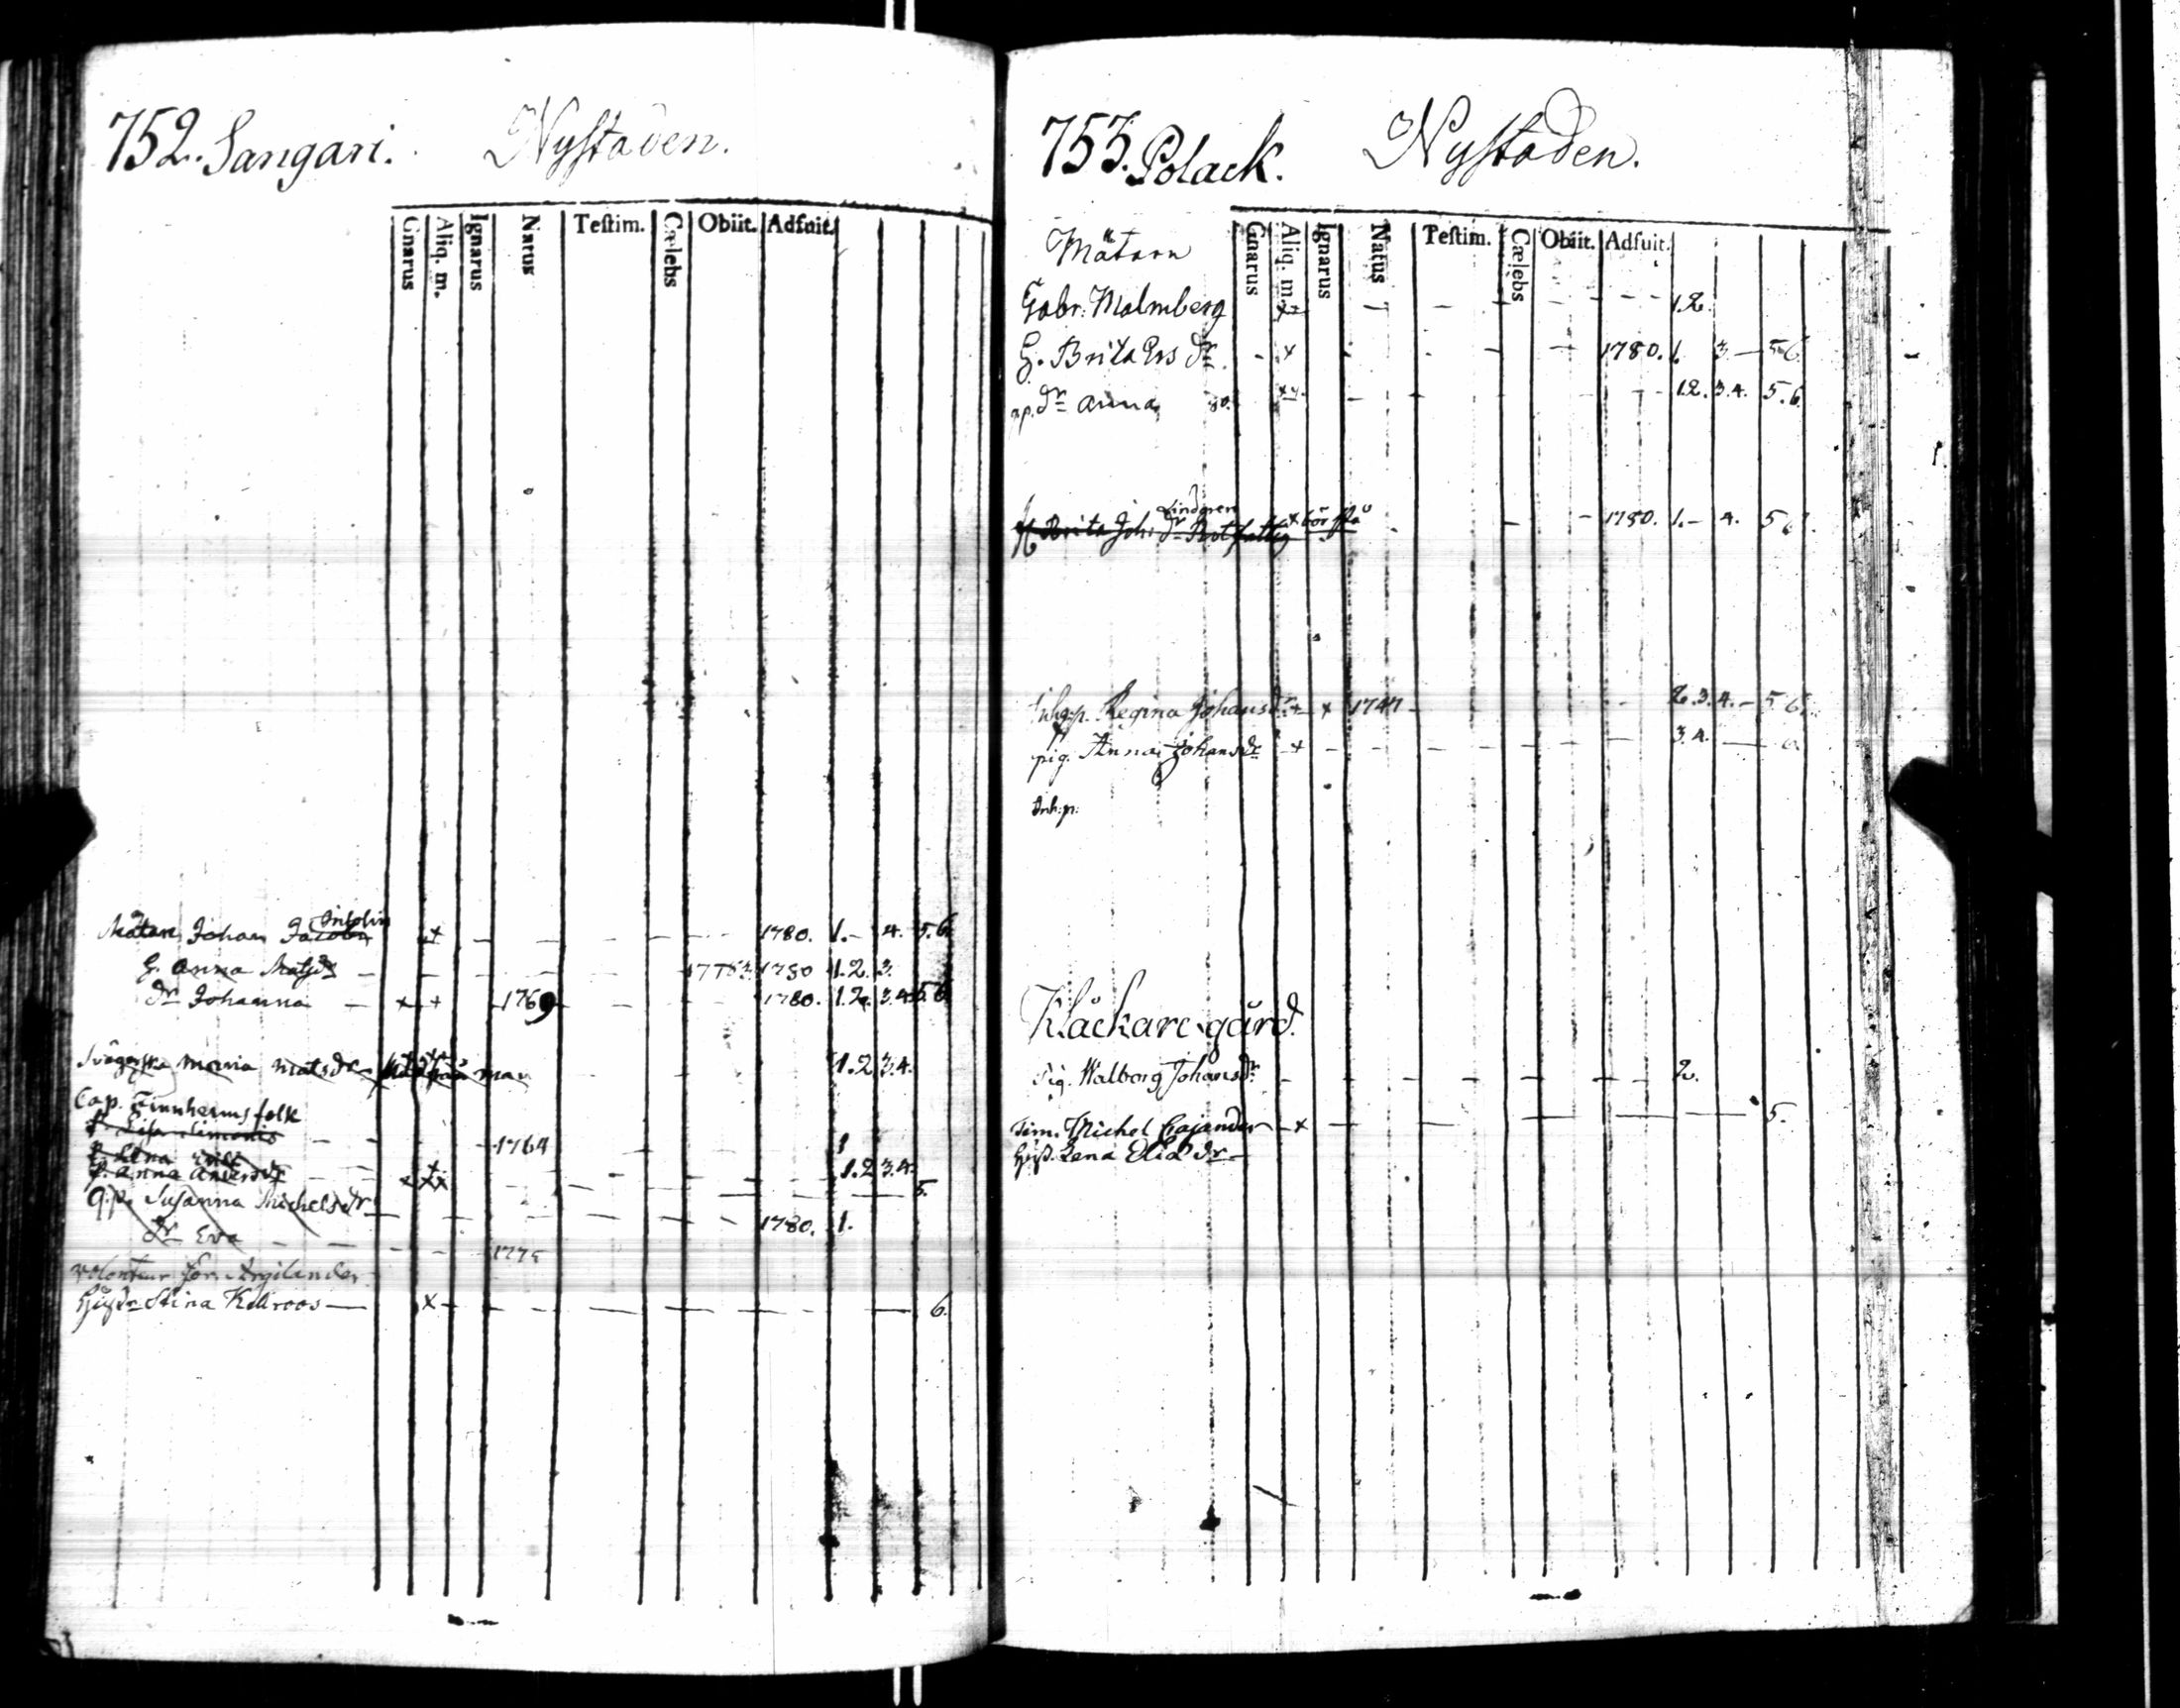 752. Sangari. Nystaden.
Gnarus Aliq. m. Ignarus Natus Testim. Cælebs Obiit. Adfuit.
Mätare Johan Jacobs 1780. 1.- 4. 5.6.
H. Anna Matsdr 1780 1.2. 3.
dr Johanna 1769 1780. 1.2. 3.4. 5.6.
Svägerska Maria Matsdr 1.2 3.4.
Cap. Finnherms folk
P. Lisa Simonis 1764 1
P. Lena
P. Anna Andersdr 1.2 3.4.
q.p. Susanna Michelsdr 5.
1780. 1.
dr Eva 1775
Volonteur Argilander
Hustr Stina Kellroos 6.
753. Polack. Nystaden.
Gnarus Aliq. m. Ignarus Natus Testim. Cælebs Obiit. Adfuit.
Mätarn
Gabr. Malmberg 1.2.
H. Brita Ers dr 1780. 1. 3 - 5.6.
dr Anna 80. 1.2. 3.4. 5.6.
Lindgren
Brita Joh. dr 1780. 1.- 4. 5 6.
Inh.p. Regina Johansdr 1747 2.3.4.- 5 6.
pig. Anna Johansdr 3.4.
Inh.p.
Klåckare gård.
Pig. Walborg Johansdr 2.
Tim. Michel Cajander 5.
Hust. Lena Elias dr